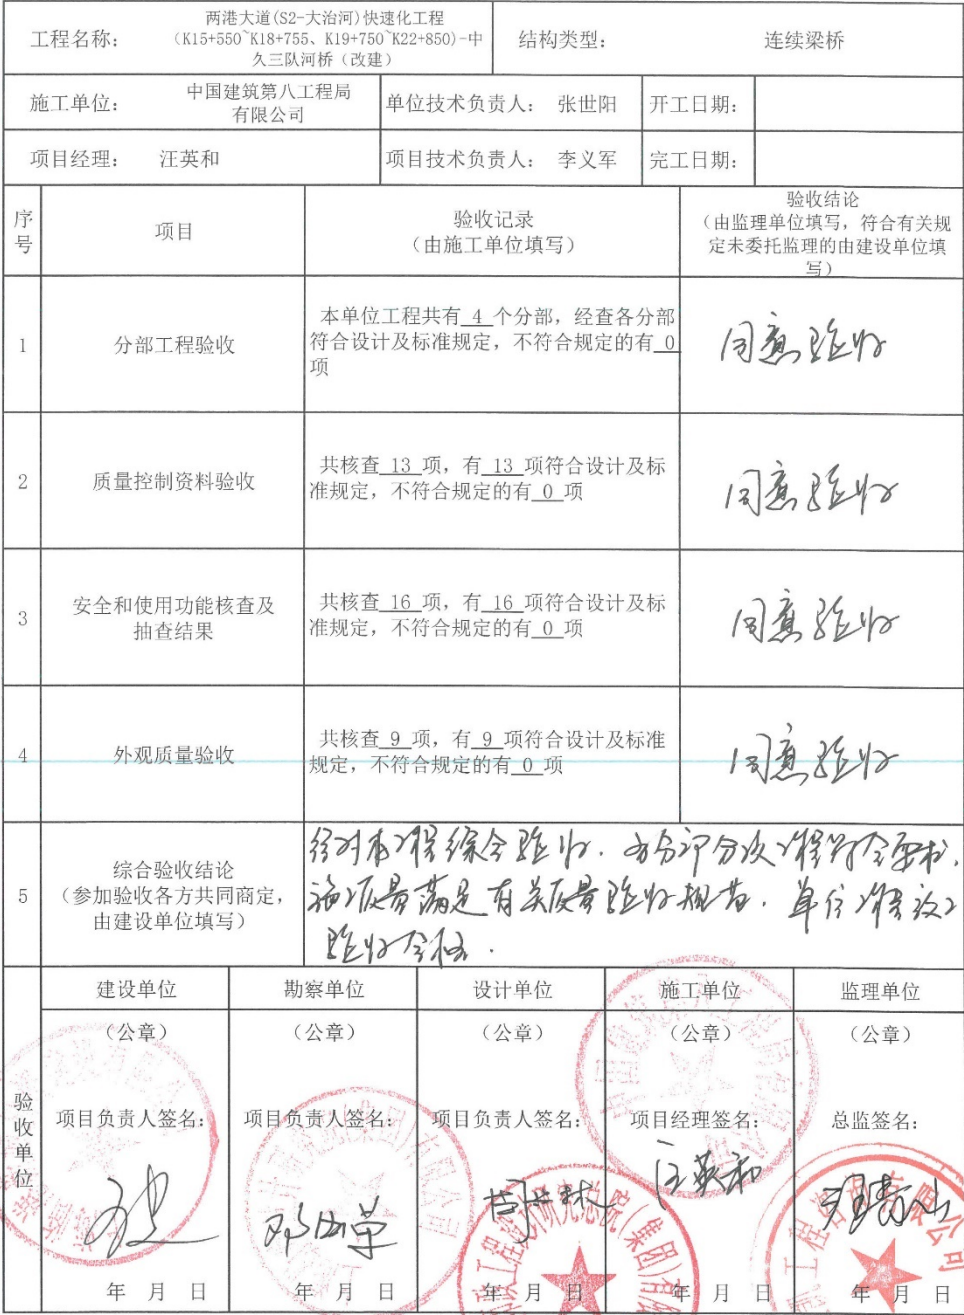 工程名称：
两港大道(S2-大治河)快速化工程
（K15+550~K18+755、K19+750~K22+850)-中
久三队河桥（改建）
结构类型：
连续梁桥
施工单位：
中国建筑第八工程局
有限公司
单位技术负责人：
张世阳
开工日期：
项目经理：
汪英和
项目技术负责人：
李义军
完工日期：
序
号
项目
验收记录
（由施工单位填写）
验收结论
（由监理单位填写，符合有关规
定未委托监理的由建设单位填
写）
1
分部工程验收
本单位工程共有 4 个分部，经查各分部
符合设计及标准规定，不符合规定的有 0
项
同意验收
2
质量控制资料验收
共核查 13 项，有 13 项符合设计及标
准规定，不符合规定的有 0 项
同意验收
3
安全和使用功能核查及
抽查结果
共核查 16 项，有 16 项符合设计及标
准规定，不符合规定的有 0 项
同意验收
4
外观质量验收
共核查 9 项，有 9 项符合设计及标准
规定，不符合规定的有 0 项
同意验收
5
综合验收结论
（参加验收各方共同商定，
由建设单位填写）
经对本工程综合验收，各分部分项工程符合要求，
施工质量满足有关质量验收规范，单位工程竣工
验收合格．
验
收
单
位
建设单位
勘察单位
设计单位
施工单位
监理单位
（公章）
（公章）
（公章）
（公章）
（公章）
项目负责人签名：
项目负责人签名：
项目负责人签名：
项目经理签名：
总监签名：
汪英和
年 月 日
年 月 日
年 月 日
年 月 日
年 月 日